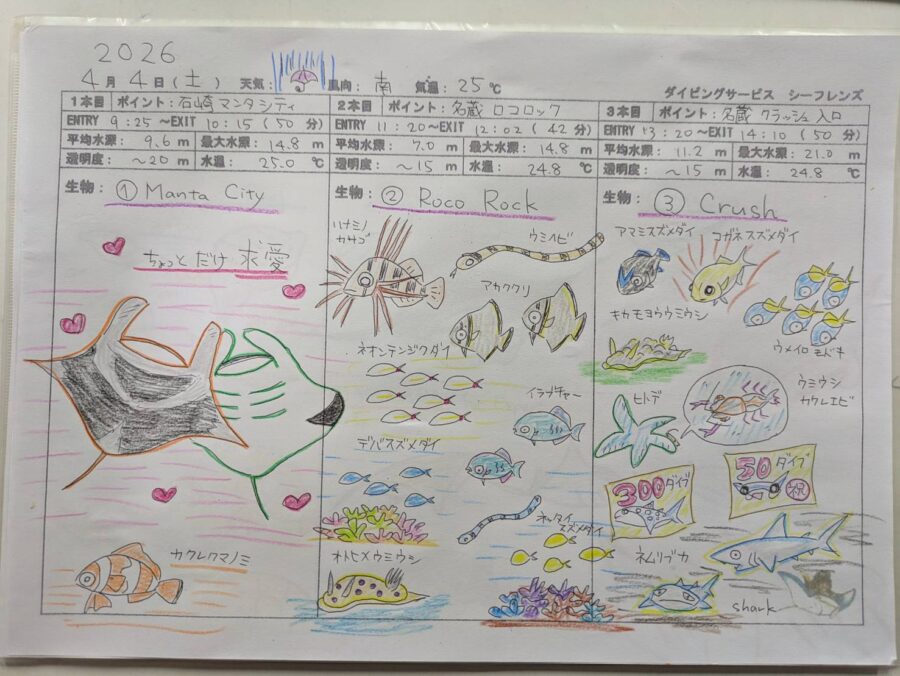 2026
4月 4日(土) 天気: 風向: 南 気温: 25℃
ダイビングサービス シーフレンズ
1本目 ポイント: 石崎マンタシティ
ENTRY 9:25 ~EXIT 10:15 ( 50 分)
平均水深: 9.6 m 最大水深: 14.8 m
透明度: ~20 m 水温: 25.0 ℃
生物: ① Manta City
ちょっとだけ 求愛
カクレクマノミ
2本目 ポイント: 名蔵 ロコロック
ENTRY 11:20 ~EXIT 12:02 ( 42 分)
平均水深: 7.0 m 最大水深: 14.8 m
透明度: ~15 m 水温: 24.8 ℃
生物: ② Roco Rock
ハナミノ
カサゴ
ウミヘビ
アカククリ
ネオンテンジクダイ
イラブチャー
デバスズメダイ
ネッタイ
スズメダイ
オトヒメウミウシ
3本目 ポイント: 名蔵 クラッシュ入口
ENTRY 13:20 ~EXIT 14:10 ( 50 分)
平均水深: 11.2 m 最大水深: 21.0 m
透明度: ~15 m 水温: 24.8 ℃
生物: ③ Crush
アマミスズメダイ
コガネスズメダイ
キカモヨウウミウシ
ウメイロモドキ
ヒトデ
ウミウシ
カクレエビ
300ダイブ
50ダイブ
祝
ネムリブカ
shark